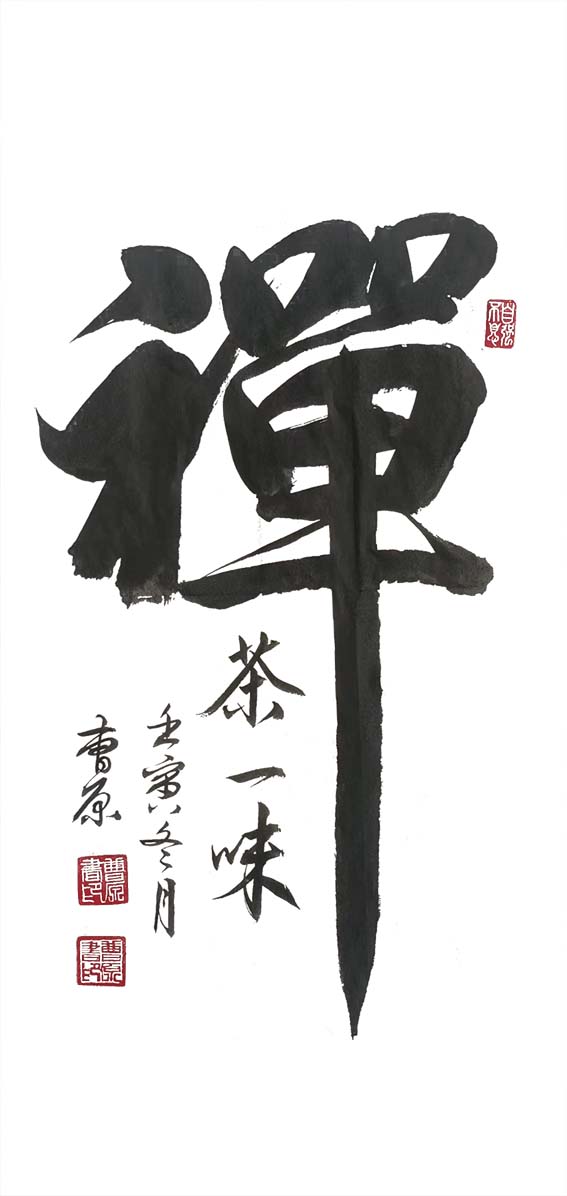 禪
茶一味
壬寅冬月
曹原
自強不息
曹原書印
曹原書印